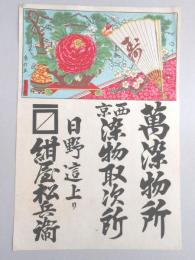 寿
萬染物所
西京染物取次所
日野這上リ
紺屋松兵衞